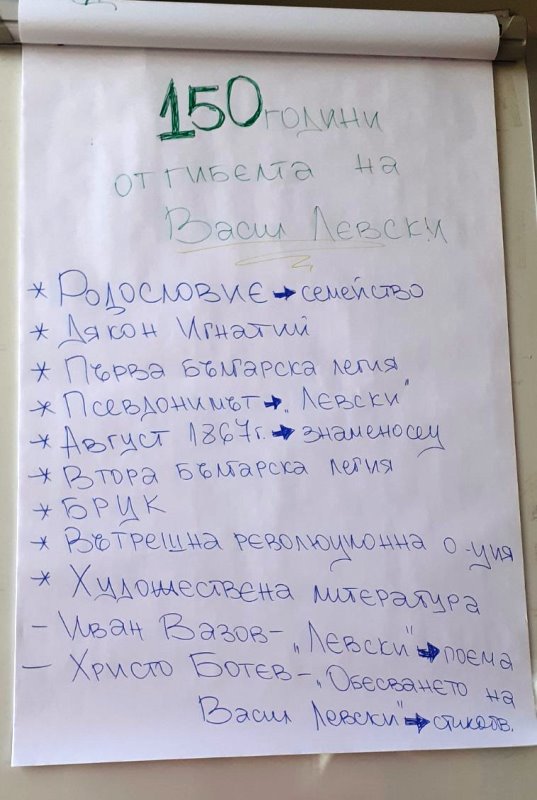 150 години
от гибелта на
Васил Левски
* Родословие → семейство
* Дякон Игнатий
* Първа българска легия
* Псевдонимът → „Левски"
* Август 1867г. → знаменосец
* Втора българска легия
* БРЦК
* Вътрешна революционна о-ция
* Художествена литература
– Иван Вазов – „Левски" → поема
– Христо Ботев – „Обесването на
Васил Левски" → стихотв.